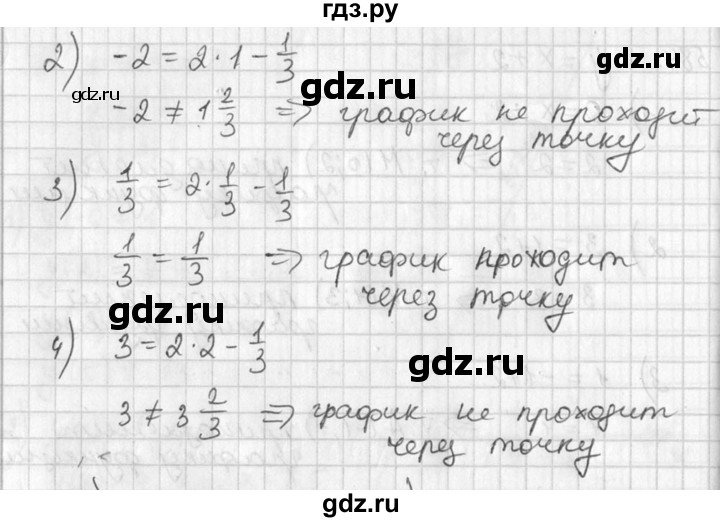 гдз.ру
2) -2 = 2·1 - 1/3
gdz.ru
gdz.ru
-2 ≠ 1 2/3 => график не проходит
через точку
3) 1/3 = 2·1/3 - 1/3
1/3 = 1/3 => график проходит
через точку
gdz.ru
4) 3 = 2·2 - 1/3
gdz.ru
3 ≠ 3 2/3 => график не проходит
через точку
gdz.ru
gdz.ru